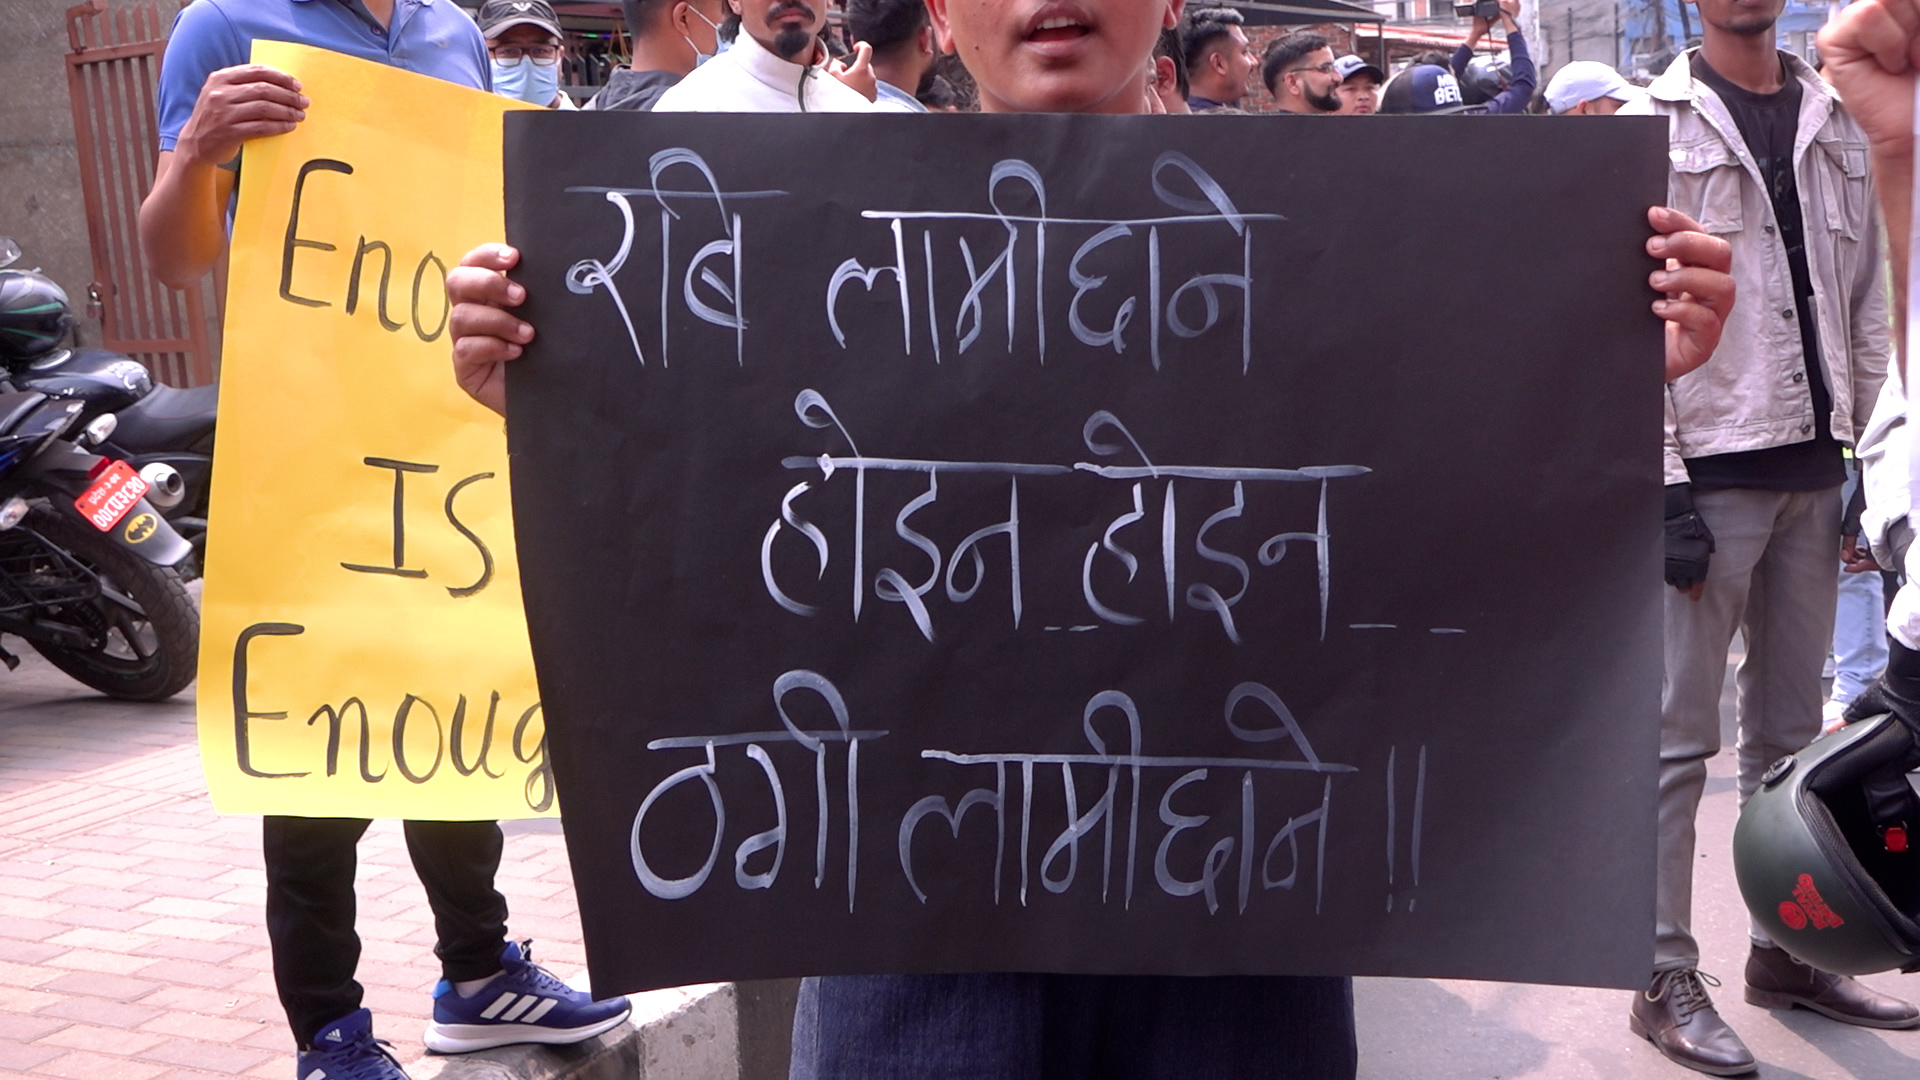 Eno
Is
Enoug
रबि लामीछाने
होइन होइन
ठगी लामीछाने !!